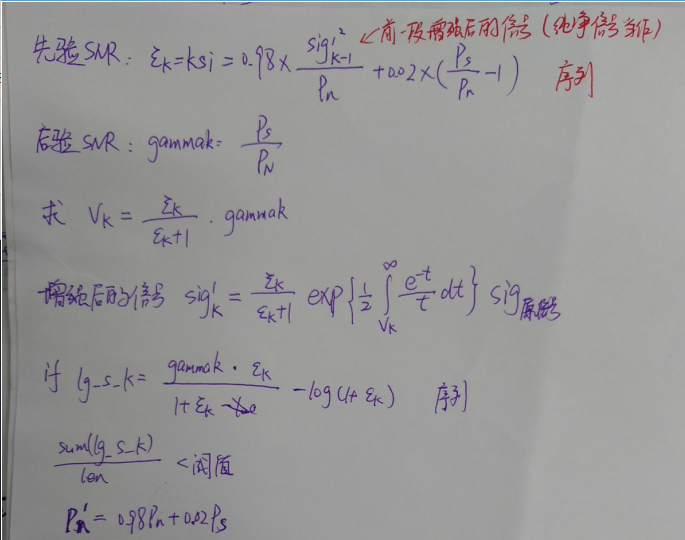 先验SNR: ξk=ksi=0.98×sig'²k-1/Pn+0.02×(Ps/Pn-1) ←前一段增强后的信号(纯净信号) 序列
后验SNR: gammak=Ps/PN
求 Vk=ξk/(ξk+1)·gammak
增强后的信号 sig'k=ξk/(ξk+1) exp{1/2∫Vk^∞ e^-t/t dt} sig原信号
if lg_s_k=gammak·ξk/(1+ξk) -log(1+ξk) 序列
sum(lg_s_k)/len <阈值
Pn'=0.98Pn+0.02Ps